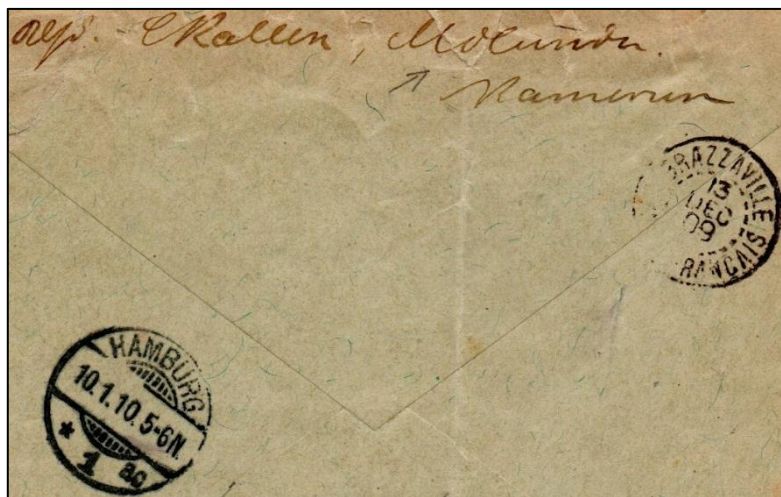 Molundu.
Kamerun
BRAZZAVILLE
13
DEC
09
RANCAIS
HAMBURG
10.1.10.5-6N.
* 1 ac